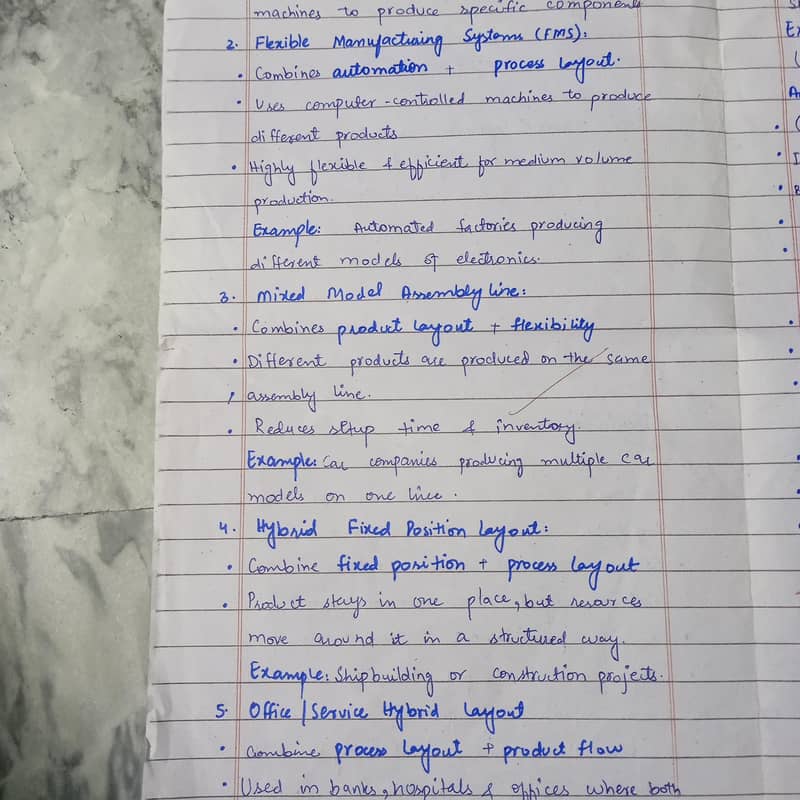 machines to produce specific components
2. Flexible Manufactuaing Systems (FMS):
• Combines automation + process layout.
• Uses computer-controlled machines to produce
different products
• Highly flexible & efficient for medium volume
production.
Example: Automated factories producing
different models of electronics.
3. Mixed Model Assembly line:
• Combines product layout + flexibility
• Different products are produced on the same
assembly line.
• Reduces setup time & inventory.
Example: Car companies producing multiple car
models on one line.
4. Hybrid Fixed Position Layout:
• Combine fixed position + process layout
• Product stays in one place, but resources
move around it in a structured way.
Example: Shipbuilding or construction projects.
5. Office/Service Hybrid Layout
• Combine process layout + product flow
• Used in banks, hospitals & offices where both